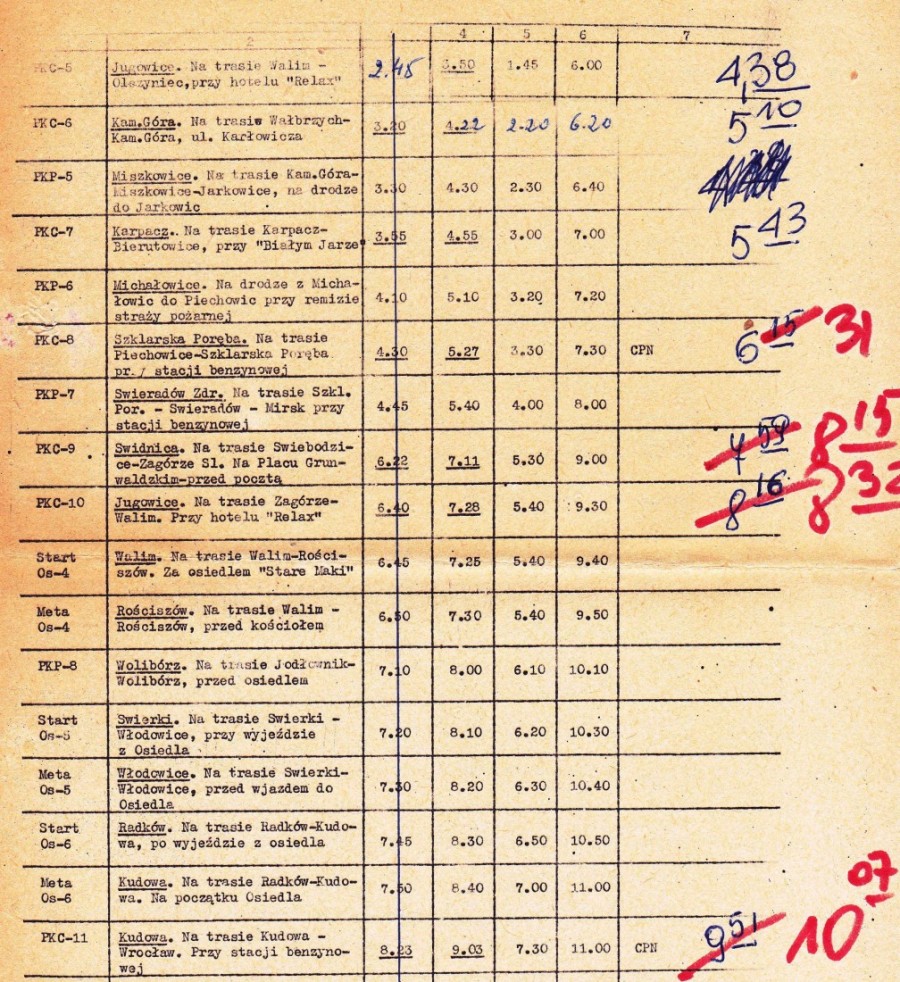 2 4 5 6 7
PKC-5 Jugowice. Na trasie Walim - 2.45 3.50 1.45 6.00 4,38
Olszyniec,przy hotelu "Relax"
PKC-6 Kam.Góra. Na trasie Wałbrzych- 3.20 4.22 2.20 6.20 5 10
Kam.Góra, ul. Karłowicza
PKP-5 Miszkowice. Na trasie Kam.Góra- 3.30 4.30 2.30 6.40
Miszkowice-Jarkowice, na drodze
do Jarkowic
PKC-7 Karpacz. Na trasie Karpacz- 3.55 4.55 3.00 7.00 5 43
Bierutowice, przy "Białym Jarze"
PKP-6 Michałowice. Na drodze z Micha- 4.10 5.10 3.20 7.20
łowic do Piechowic przy remizie
straży pożarnej
PKC-8 Szklarska Poręba. Na trasie 4.30 5.27 3.30 7.30 CPN 6 15 31
Piechowice-Szklarska Poręba
pr. stacji benzynowej
PKP-7 Swieradów Zdr. Na trasie Szkl. 4.45 5.40 4.00 8.00
Por. - Swieradów - Mirsk przy
stacji benzynowej
PKC-9 Swidnica. Na trasie Swiebodzi- 6.22 7.11 5.30 9.00 7 59 8 15
ce-Zagórze Sl. Na Placu Grun-
waldzkim-przed pocztą
PKC-10 Jugowice. Na trasie Zagórze- 6.40 7.28 5.40 9.30 8 16 8 32
Walim. Przy hotelu "Relax"
Start Walim. Na trasie Walim-Rości- 6.45 7.25 5.40 9.40
Os-4 szów. Za osiedlem "Stare Maki"
Meta Rościszów. Na trasie Walim - 6.50 7.30 5.40 9.50
Os-4 Rościszów, przed kościołem
PKP-8 Wolibórz. Na trasie Jodłownik- 7.10 8.00 6.10 10.10
Wolibórz, przed osiedlem
Start Swierki. Na trasie Swierki - 7.20 8.10 6.20 10.30
Os-5 Włodowice, przy wyjeździe
z Osiedla
Meta Włodowice. Na trasie Swierki- 7.30 8.20 6.30 10.40
Os-5 Włodowice, przed wjazdem do
Osiedla
Start Radków. Na trasie Radków-Kudo- 7.45 8.30 6.50 10.50
Os-6 wa, po wyjeździe z osiedla
Meta Kudowa. Na trasie Radków-Kudo- 7.50 8.40 7.00 11.00
Os-6 wa. Na początku Osiedla
PKC-11 Kudowa. Na trasie Kudowa - 8.23 9.03 7.30 11.00 CPN 9 51 10 07
Wrocław. Przy stacji benzyno-
wej